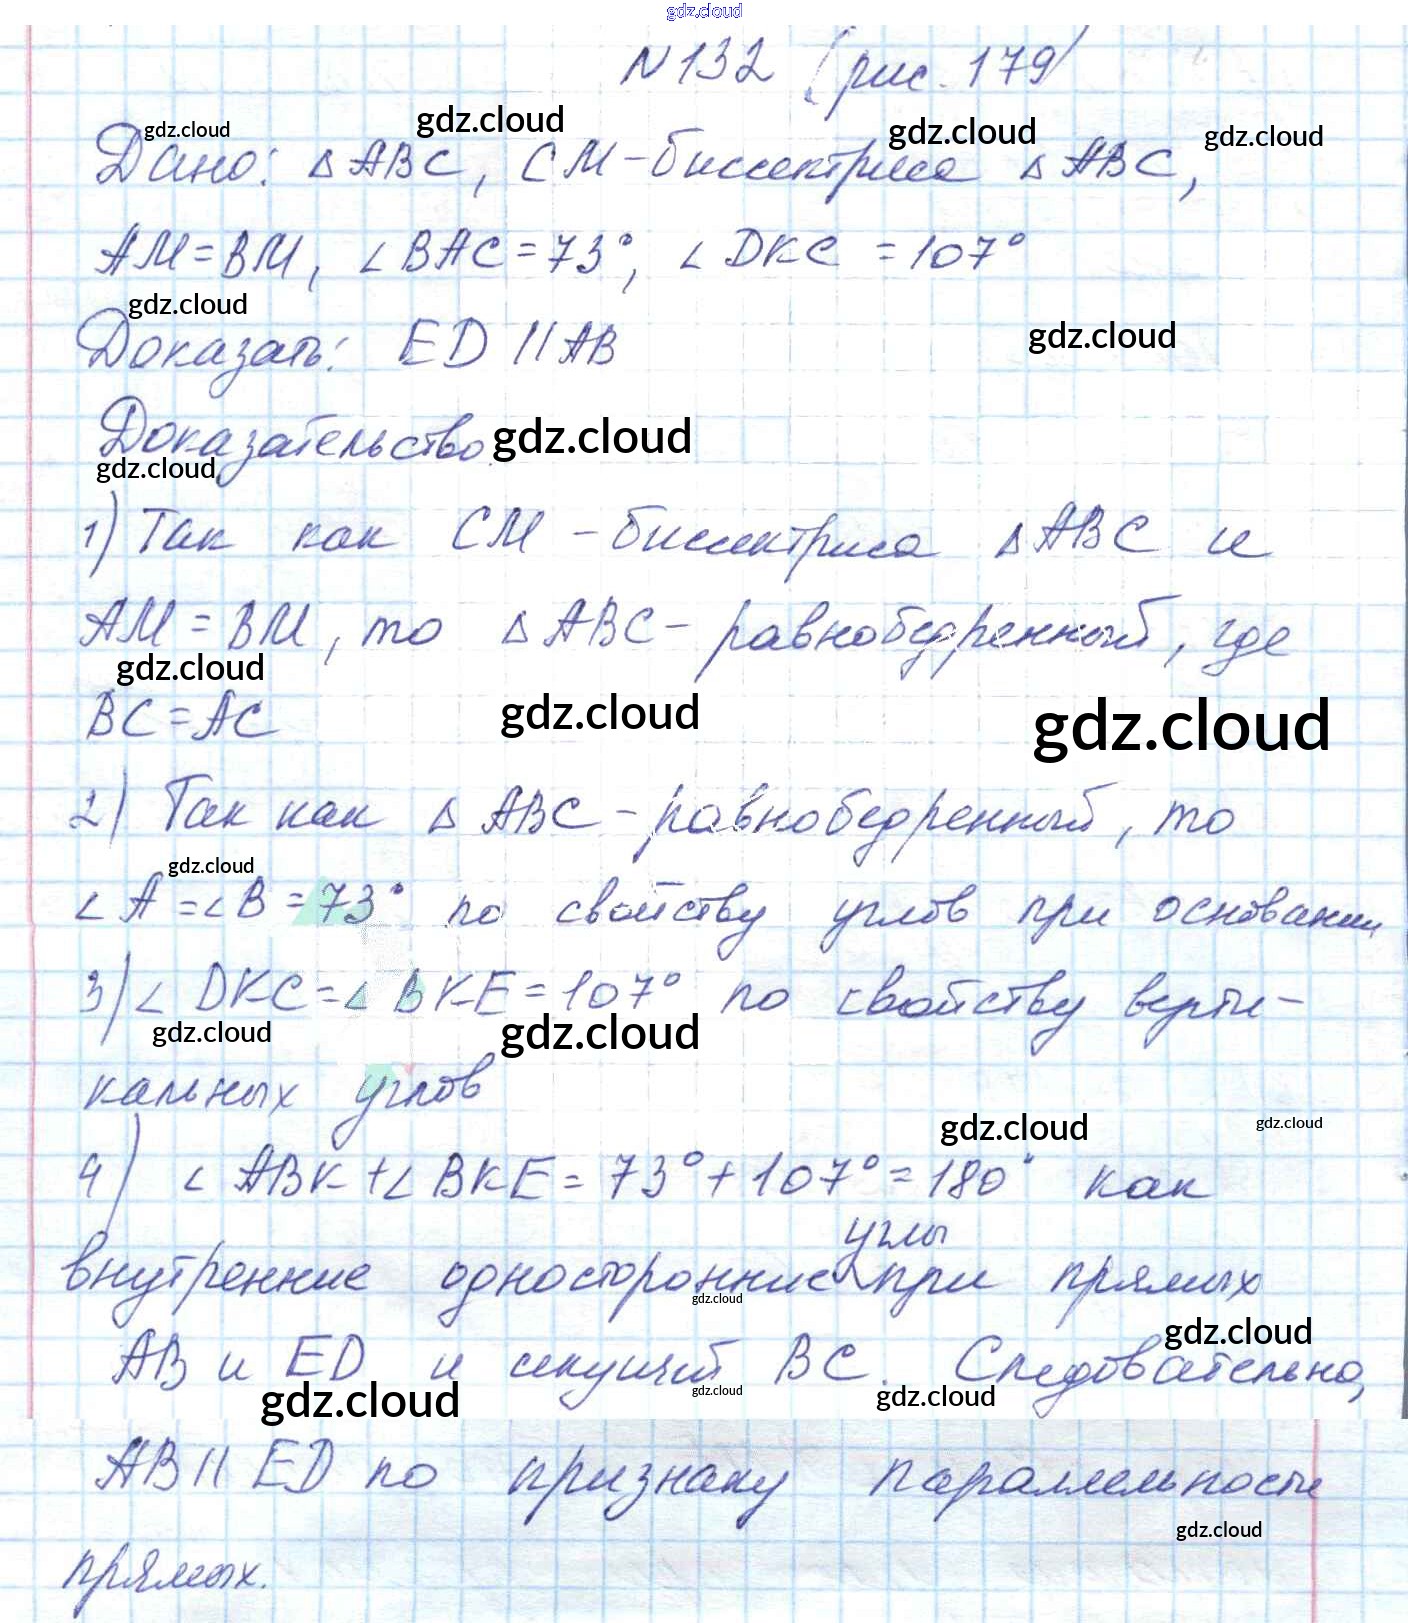 gdz.cloud
N 132 (рис. 179)
gdz.cloud gdz.cloud gdz.cloud gdz.cloud
Дано: △ABC, CM - биссектриса △ABC,
AM = BM, ∠BAC = 73°, ∠DKC = 107°
gdz.cloud gdz.cloud
Доказать: ED || AB
Доказательство. gdz.cloud
gdz.cloud
1) Так как CM - биссектриса △ABC и
AM = BM, то △ABC - равнобедренный, где
gdz.cloud gdz.cloud gdz.cloud
BC = AC
2) Так как △ABC - равнобедренный, то
gdz.cloud
∠A = ∠B = 73° по свойству углов при основании
3) ∠DKC = ∠BKE = 107° по свойству верти-
gdz.cloud gdz.cloud
кальных углов
gdz.cloud gdz.cloud
4) ∠ABK + ∠BKE = 73° + 107° = 180° как
внутренние односторонние углы при прямых
gdz.cloud gdz.cloud
AB и ED и секущей BC. Следовательно,
gdz.cloud gdz.cloud gdz.cloud
AB || ED по признаку параллельности
gdz.cloud
прямых.